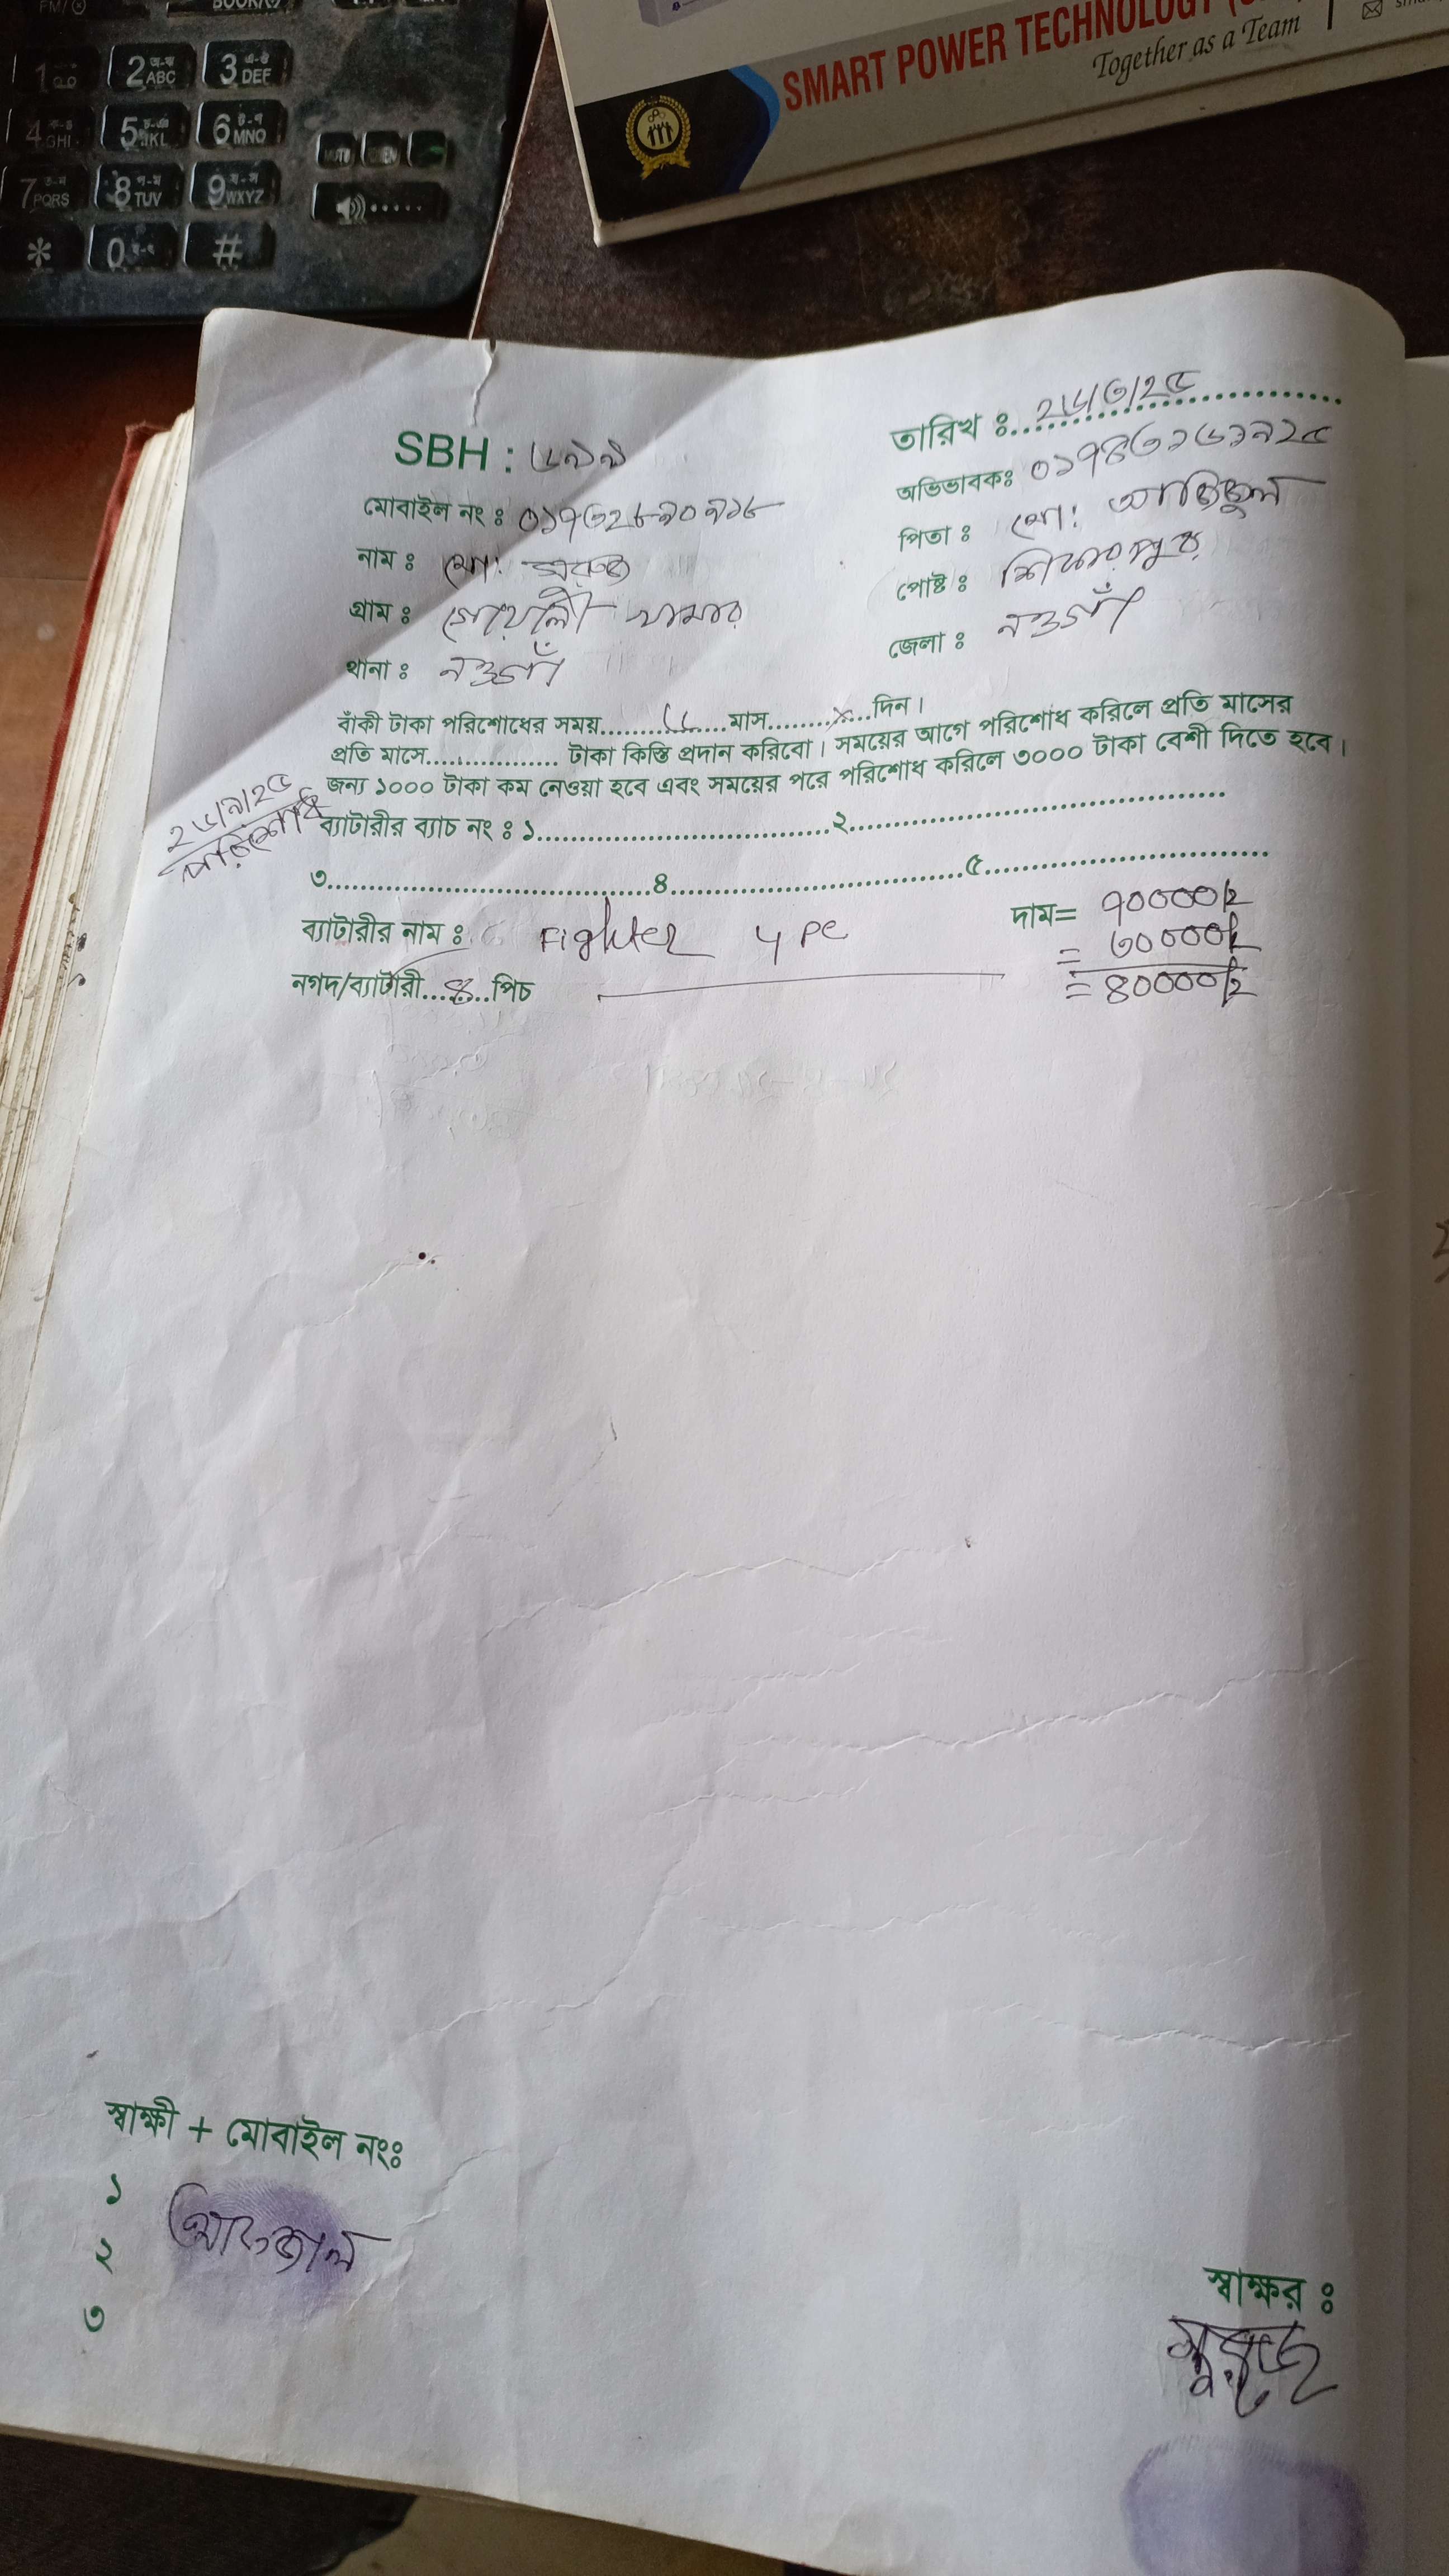 BOOK/
FM/
1
2 অ-ঞ ABC
3 এ-ঔ DEF
4 GHI
5 JKL
6 MNO
7 PQRS
8 TUV
9 WXYZ
MUTE
*
0
#
SMART POWER TECHNOLOGY
Together as a Team
SBH : ৬৯৯
তারিখ ঃ ২৬/৩/২৫
মোবাইল নং ঃ ০১৭৩২৮৯০৭১৮
অভিভাবকঃ ০১৭৪৩১৬১৯২৫
নাম ঃ মো:
পিতা ঃ মো:
গ্রাম ঃ গোয়ালী খামার
পোষ্ট ঃ শিকারপুর
থানা ঃ নওগাঁ
জেলা ঃ নওগাঁ
বাঁকী টাকা পরিশোধের সময়........৬....মাস........×...দিন।
প্রতি মাসে................ টাকা কিস্তি প্রদান করিবো। সময়ের আগে পরিশোধ করিলে প্রতি মাসের
জন্য ১০০০ টাকা কম নেওয়া হবে এবং সময়ের পরে পরিশোধ করিলে ৩০০০ টাকা বেশী দিতে হবে।
২৬/৯/২৫
পরিশোধ
ব্যাটারীর ব্যাচ নং ঃ ১........................................২................................................
৩........................................৪........................................৫....................................
ব্যাটারীর নাম ঃ Fighter 4 PC
দাম= ৭০০০০/=
= ৩০০০০/=
নগদ/ব্যাটারী...৪...পিচ
= ৪০০০০/=
স্বাক্ষী + মোবাইল নংঃ
১
২
৩
স্বাক্ষর ঃ